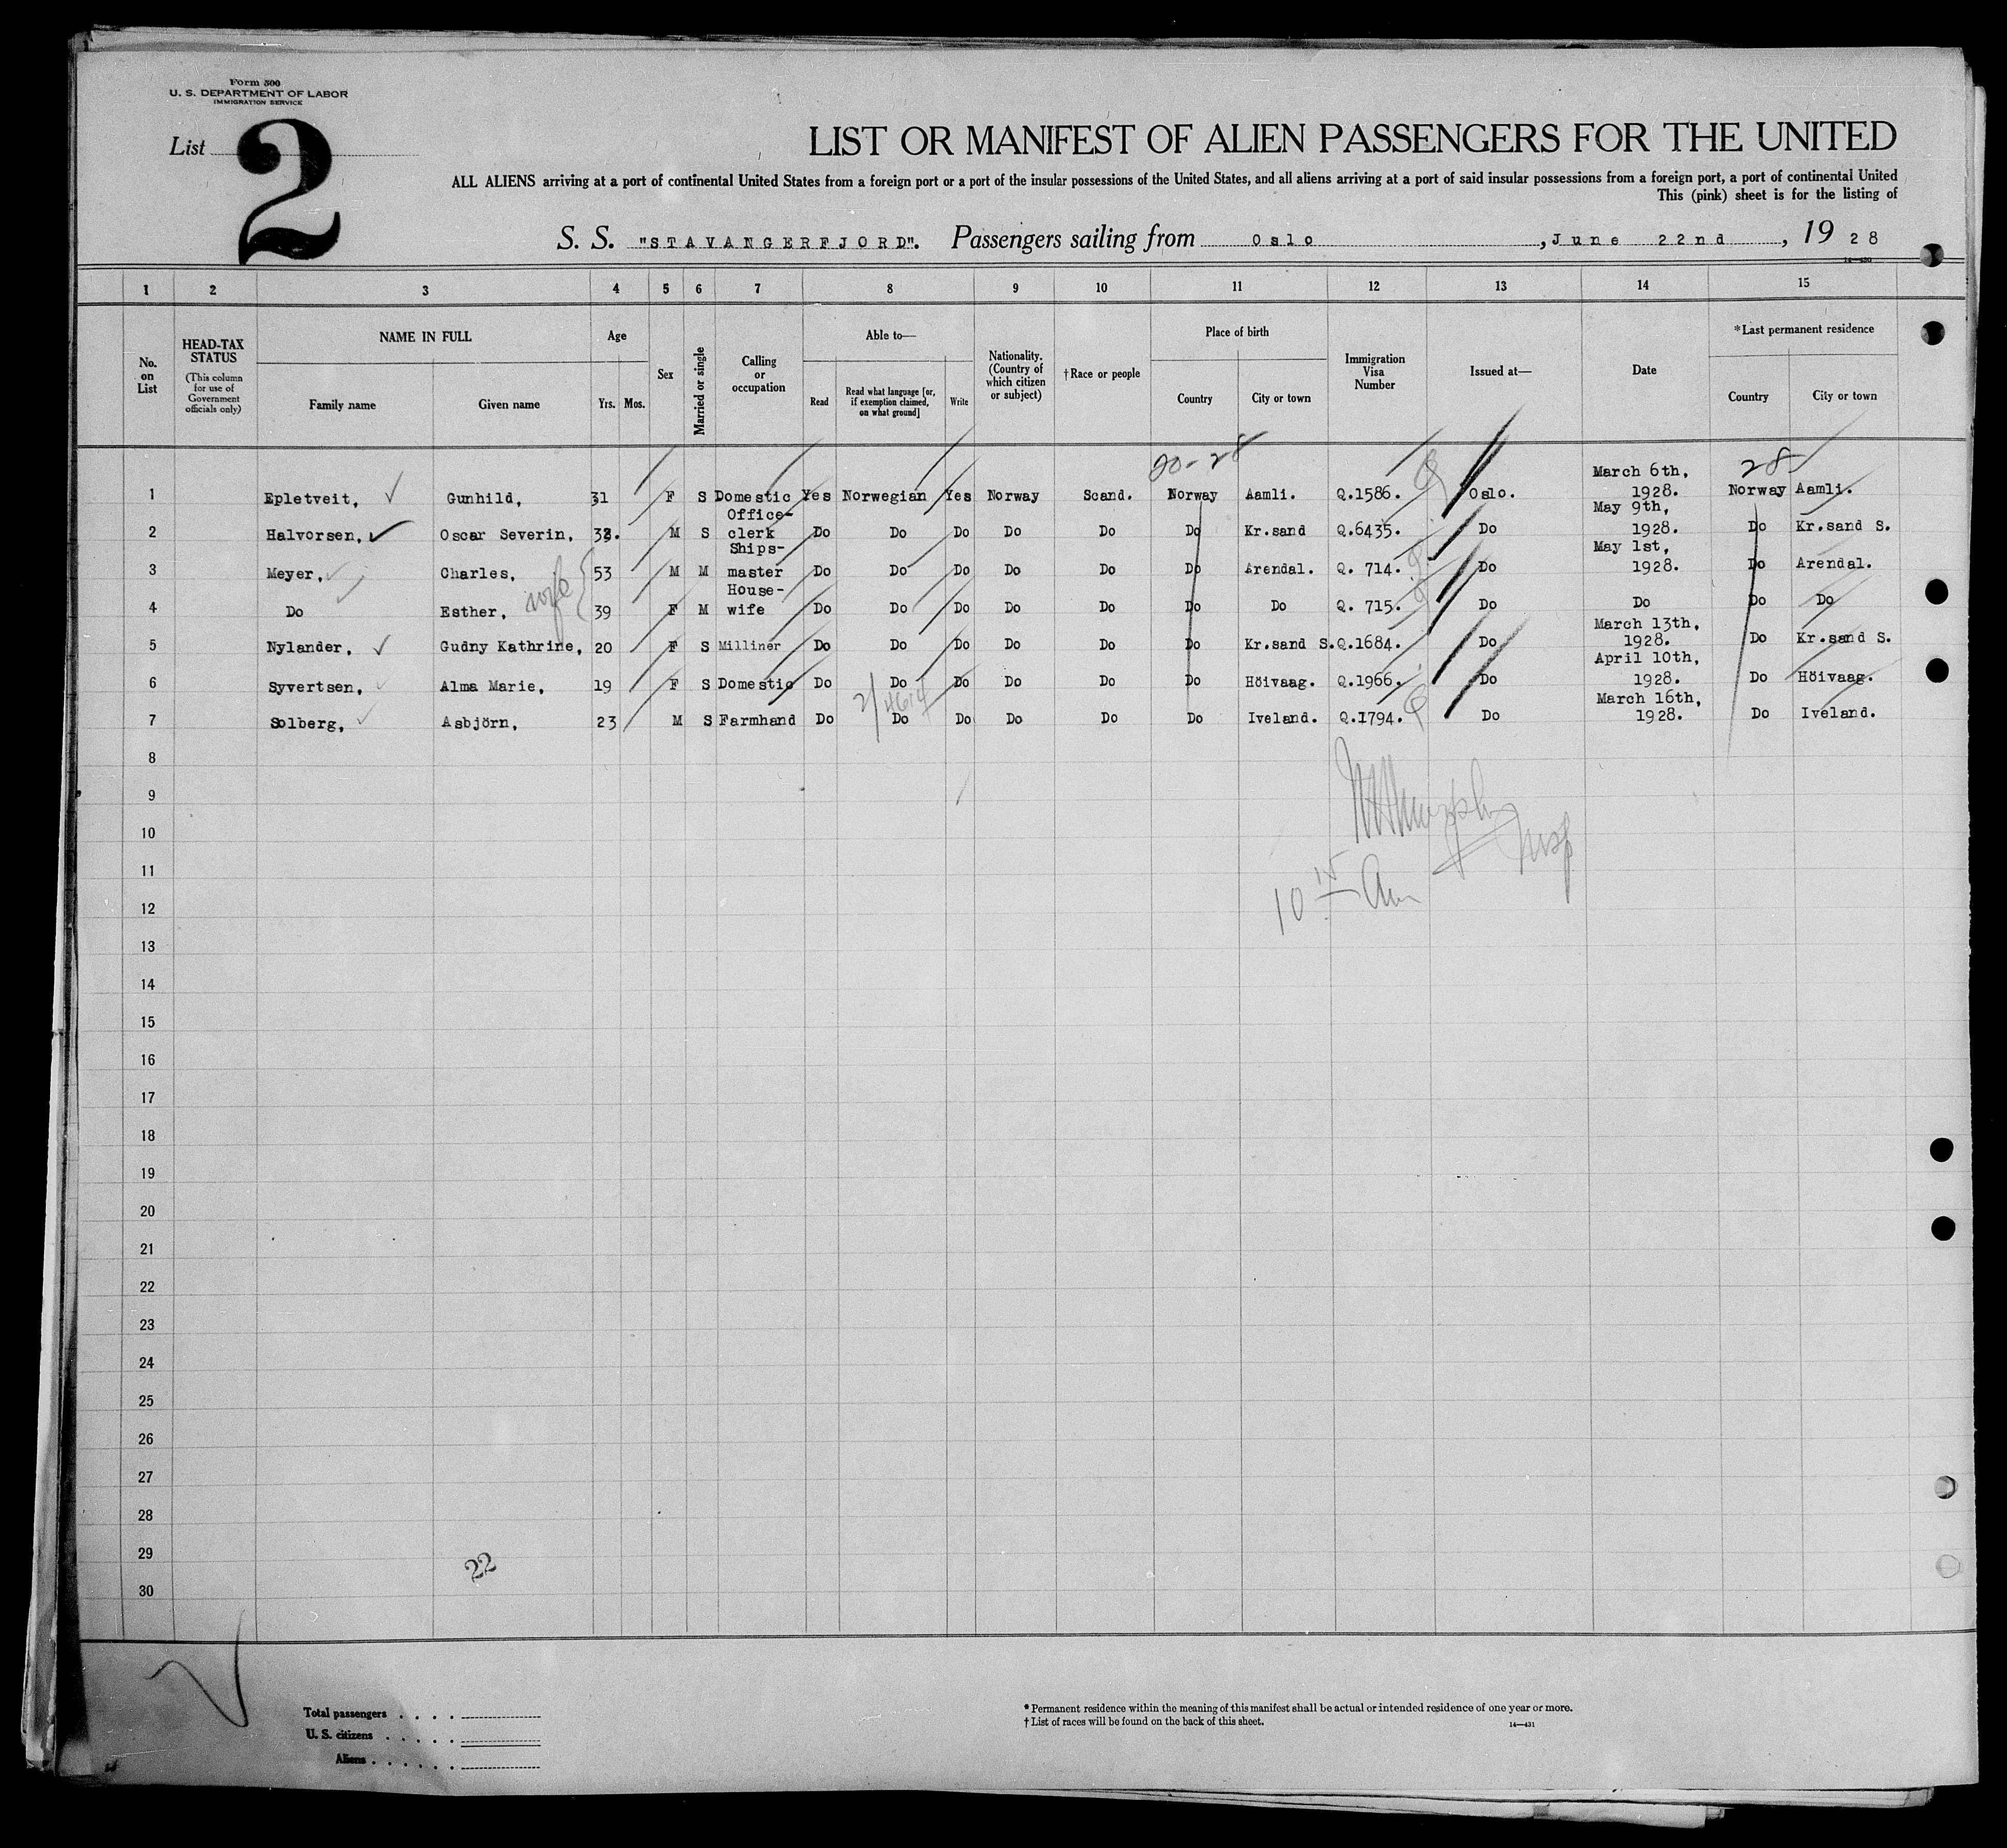 Form 500
U. S. DEPARTMENT OF LABOR
IMMIGRATION SERVICE
List 2
LIST OR MANIFEST OF ALIEN PASSENGERS FOR THE UNITED
ALL ALIENS arriving at a port of continental United States from a foreign port or a port of the insular possessions of the United States, and all aliens arriving at a port of said insular possessions from a foreign port, a port of continental United
This (pink) sheet is for the listing of
S. S. "STAVANGERFJORD". Passengers sailing from Oslo, June 22nd, 19 28
14—430
1 2 3 4 5 6 7 8 9 10 11 12 13 14 15
No. on List
HEAD-TAX STATUS (This column for use of Government officials only)
NAME IN FULL
Family name Given name
Age
Yrs. Mos.
Sex
Married or single
Calling or occupation
Able to—
Read
Read what language [or, if exemption claimed, on what ground]
Write
Nationality. (Country of which citizen or subject)
†Race or people
Place of birth
Country City or town
Immigration Visa Number
Issued at—
Date
*Last permanent residence
Country City or town
20-28 28
1 Epletveit, Gunhild, 31 F S Domestic Yes Norwegian Yes Norway Scand. Norway Aamli. Q.1586. Oslo. March 6th, 1928. Norway Aamli.
2 Halvorsen, Oscar Severin, 32. M S Office-clerk Do Do Do Do Do Do Kr.sand Q.6435. Do May 9th, 1928. Do Kr.sand S.
3 Meyer, Charles, 53 M M Ships-master Do Do Do Do Do Do Arendal. Q. 714. Do May 1st, 1928. Do Arendal.
4 Do Esther, wife 39 F M House-wife Do Do Do Do Do Do Do Q. 715. Do Do Do Do
5 Nylander, Gudny Kathrine, 20 F S Milliner Do Do Do Do Do Do Kr.sand S. Q.1684. Do March 13th, 1928. Do Kr.sand S.
6 Syvertsen, Alma Marie, 19 F S Domestic Do Do Do Do Do Do Höivaag. Q.1966. Do April 10th, 1928. Do Höivaag.
7 Solberg, Asbjörn, 23 M S Farmhand Do Do Do Do Do Do Iveland. Q.1794. Do March 16th, 1928. Do Iveland.
8
9
10
11
10 15 Am
12
13
14
15
16
17
18
19
20
21
22
23
24
25
26
27
28
29
22
30
Total passengers . . . .
U. S. citizens . . . . .
Aliens . . . . . .
* Permanent residence within the meaning of this manifest shall be actual or intended residence of one year or more.
† List of races will be found on the back of this sheet.
14—431